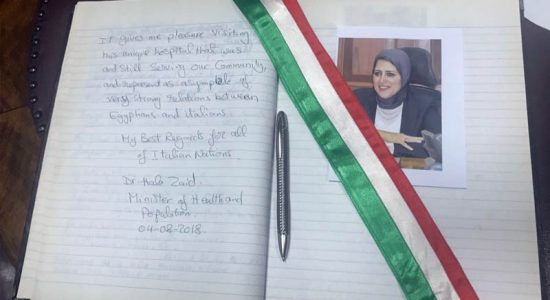 It gives me pleasure visiting
this unique hospital that was
and still serving our Community,
and represent as a symbole of
very strong relations between
Egyptians and italians.
My Best Regments for all
of Italian Nations.
Dr Hala Zaid.
Minister of Health and
Population.
04-08-2018